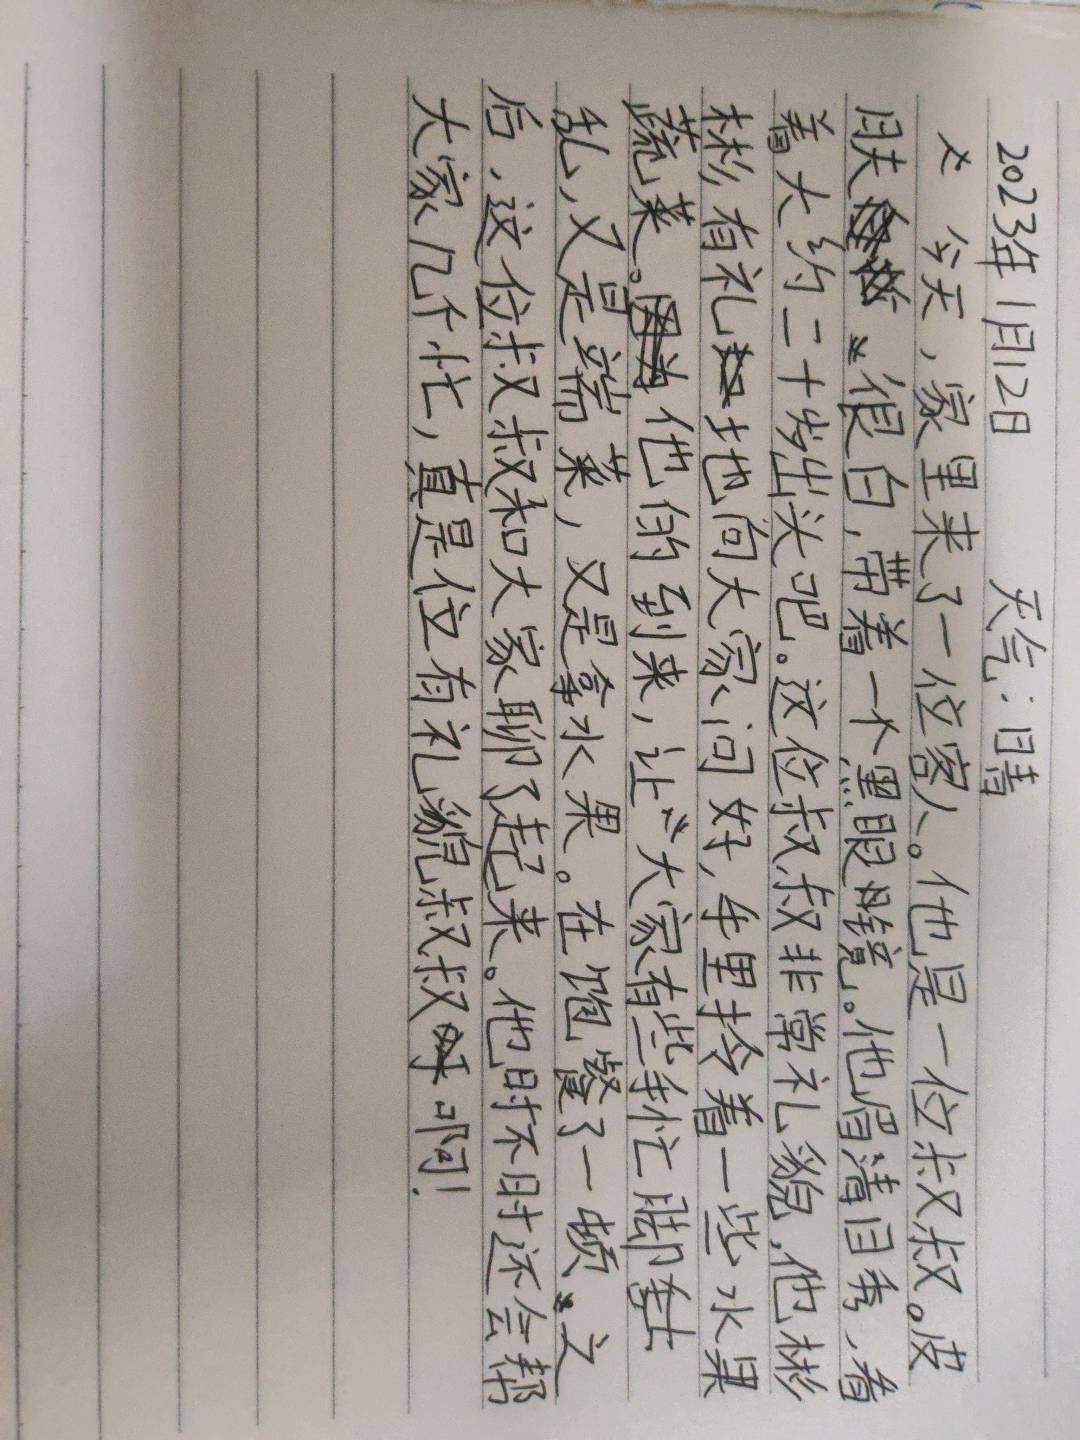 2023年1月12日 天气：晴
今天，家里来了一位客人。他是一位叔叔。皮
肤很白，带着一个黑眼镜。他眉清目秀，看
着大约二十岁出头吧。这位叔叔非常礼貌，他彬
彬有礼地向大家问好，手里拎着一些水果
蔬菜。他们的到来，让大家有些手忙脚
乱，又是端菜，又是拿水果。在饱餐了一顿之
后，这位叔叔和大家聊了起来。他时不时还会帮
大家几个忙，真是位有礼貌叔叔啊！